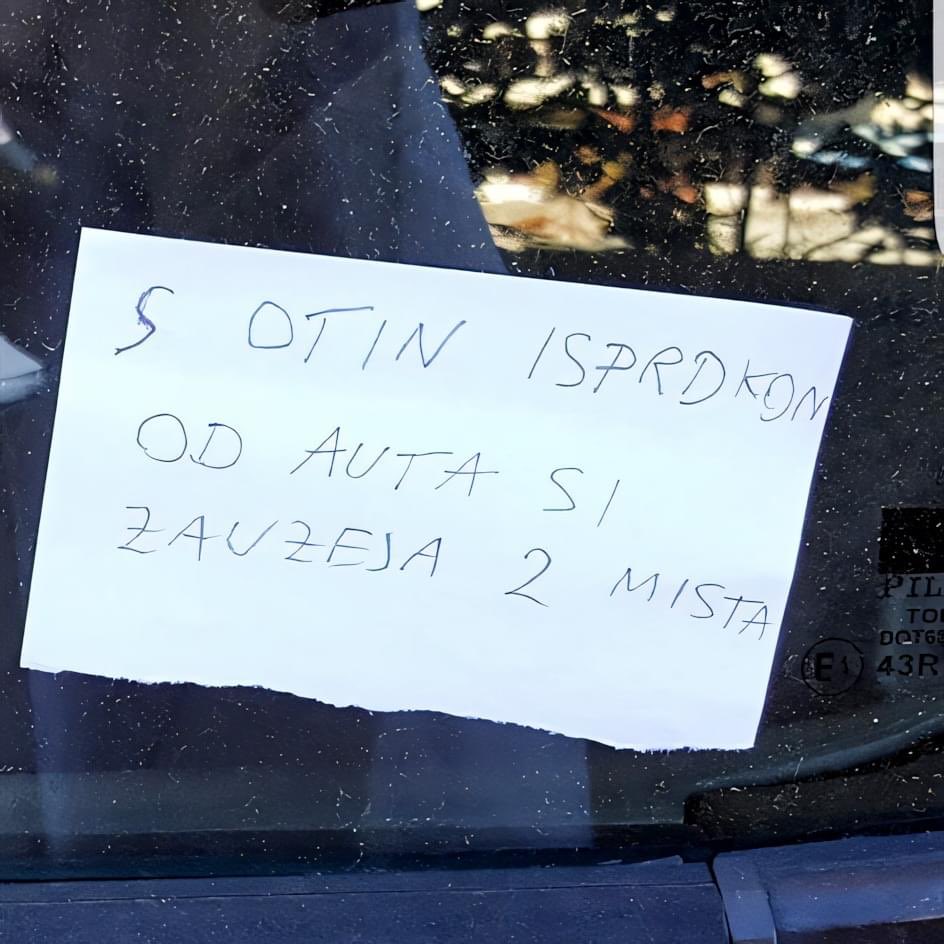 S OTIN ISPRDKON
OD AUTA SI
ZAUZEJA 2 MISTA
PIL
DOT6
E1 43R